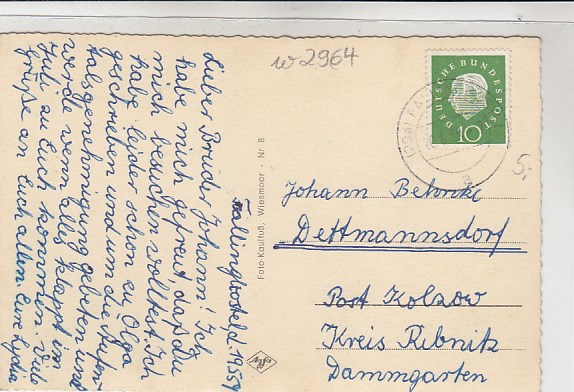 Fallingbostel d. 19.5.59
Lieber Bruder Johann! Ich
habe mich gefreut, daß du
mich besuchen wolltest. Ich
habe leider schon zu Olga
geschrieben und um die Aufent-
haltsgenehmigung gebeten und
werde wenn alles klappt im
Juli zu Euch kommen. Viele
Grüße an Euch allen. Eure Lydia
Foto-Kauffuß, Wiesmoor - Nr 8
Agfa
w2964
DEUTSCHE BUNDESPOST
10
(20a) FA
5,-
Johann Behnke
Dettmannsdorf
Post Kolzow
Kreis Ribnitz
Dammgarten